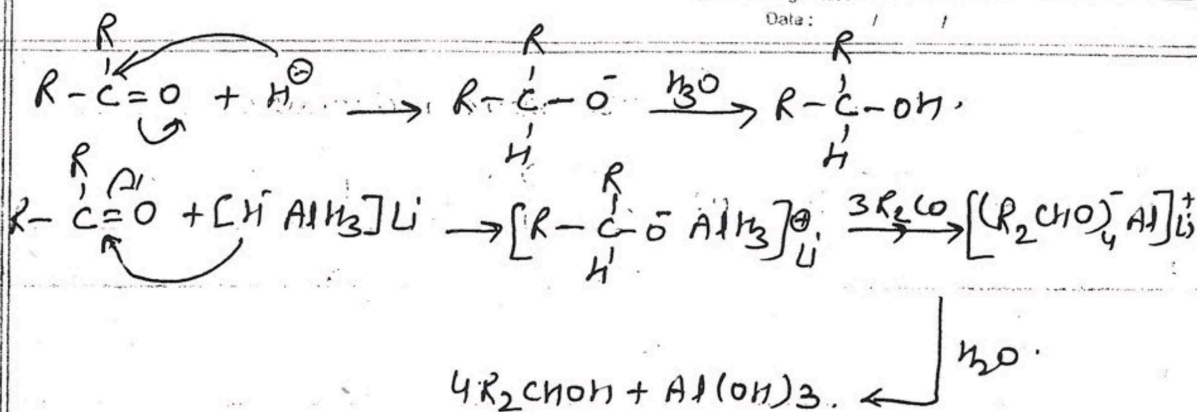 Data: / /
R
R-C=O + H⊖ → R-C-O⁻ H3O → R-C-OH.
R R
H H
R
R-C=O + [H⁻ AlH3]Li → [R-C-O⁻ AlH3]⊕Li 3R2CO → [(R2CHO)⁻4 Al]Li⁺
R
H
H2O.
4R2CHOH + Al(OH)3. ←